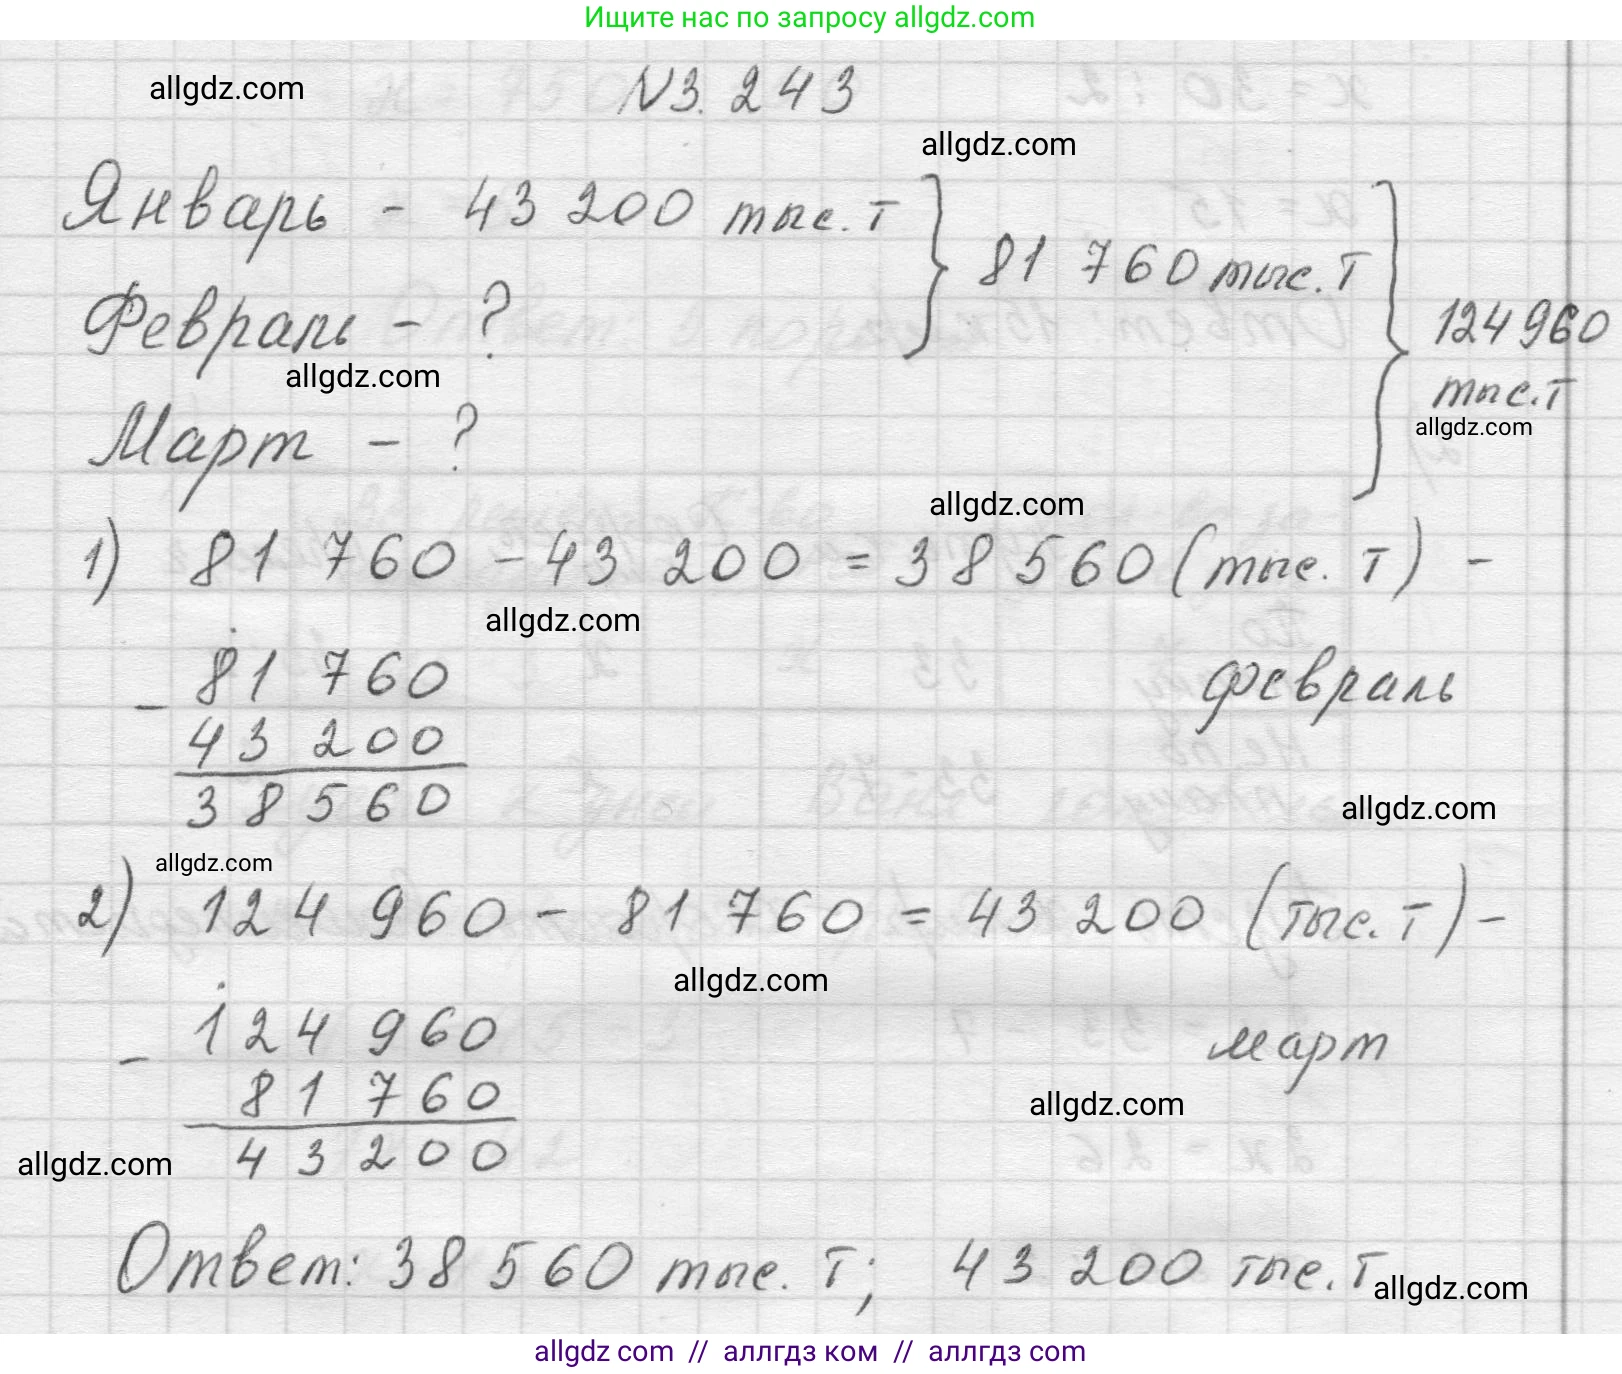 Ищите нас по запросу allgdz.com
allgdz.com
N3.243
allgdz.com
Январь - 43 200 тыс. т
81 760 тыс. т
Февраль - ?
124960
тыс. т
allgdz.com
allgdz.com
Март - ?
allgdz.com
1) 81 760 - 43 200 = 38 560 (тыс. т) -
февраль
allgdz.com
- 81 760
43 200
38 560
allgdz.com
allgdz.com
2) 124 960 - 81 760 = 43 200 (тыс. т) -
март
allgdz.com
- 124 960
81 760
43 200
allgdz.com
allgdz.com
Ответ: 38 560 тыс. т; 43 200 тыс. т
allgdz.com
allgdz com // аллгдз ком // аллгдз com